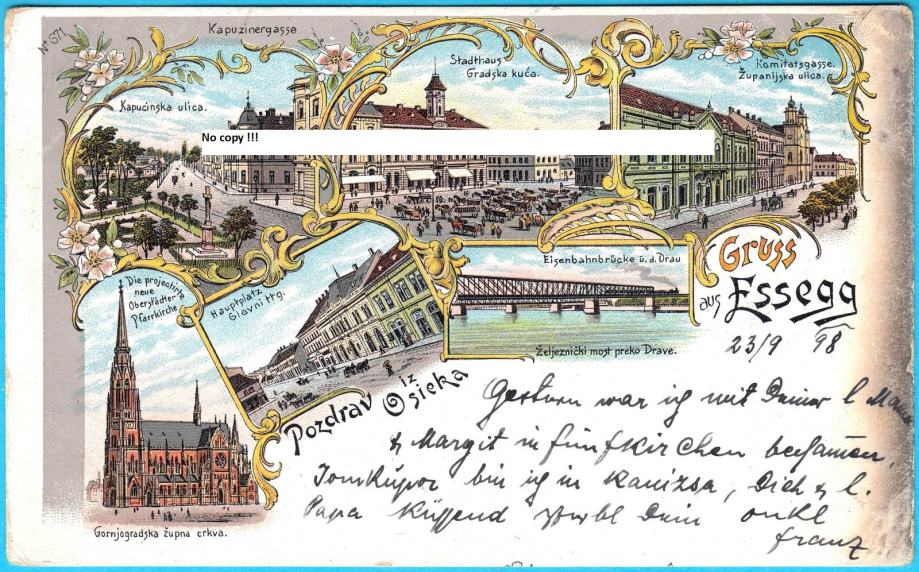 No 671
Kapuzinergasse
Kapucinska ulica.
Stadthaus
Gradska kuća.
Komitatsgasse.
Županijska ulica.
No copy !!!
Die projectirte
neue
Oberstädter
Pfarrkirche
Gornjogradska župna crkva.
Hauptplatz
Glavni trg.
Eisenbahnbrücke ü. d. Drau
Željeznički most preko Drave.
Gruss
aus Essegg
Pozdrav iz Osieka
23/9 98
Gestern war ich mit Deiner l. Mama
& Margit in Fünfkirchen beisammen,
bin ich in Kanizsa, Dich & l.
Papa küssend Dein onkl
franz